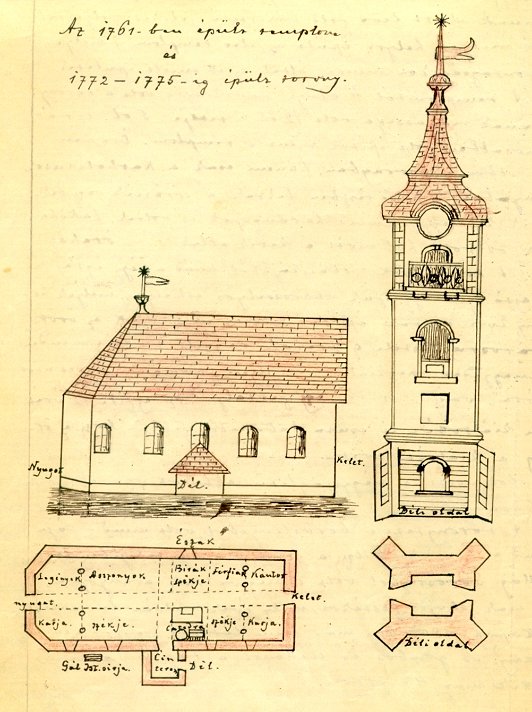 Az 1761-ben épült templom
és
1772–1775-ig épült torony.
Nyugot
Dél.
Kelet.
Déli oldal
Észak
Legények
Asszonyok
Birák
székje
Férfiak
Kántor
nyugat.
Kelet.
Karja.
székje.
Catedra
székje
Karja.
Cinterem
Dél.
Gál Ist. sirja.
Déli oldal